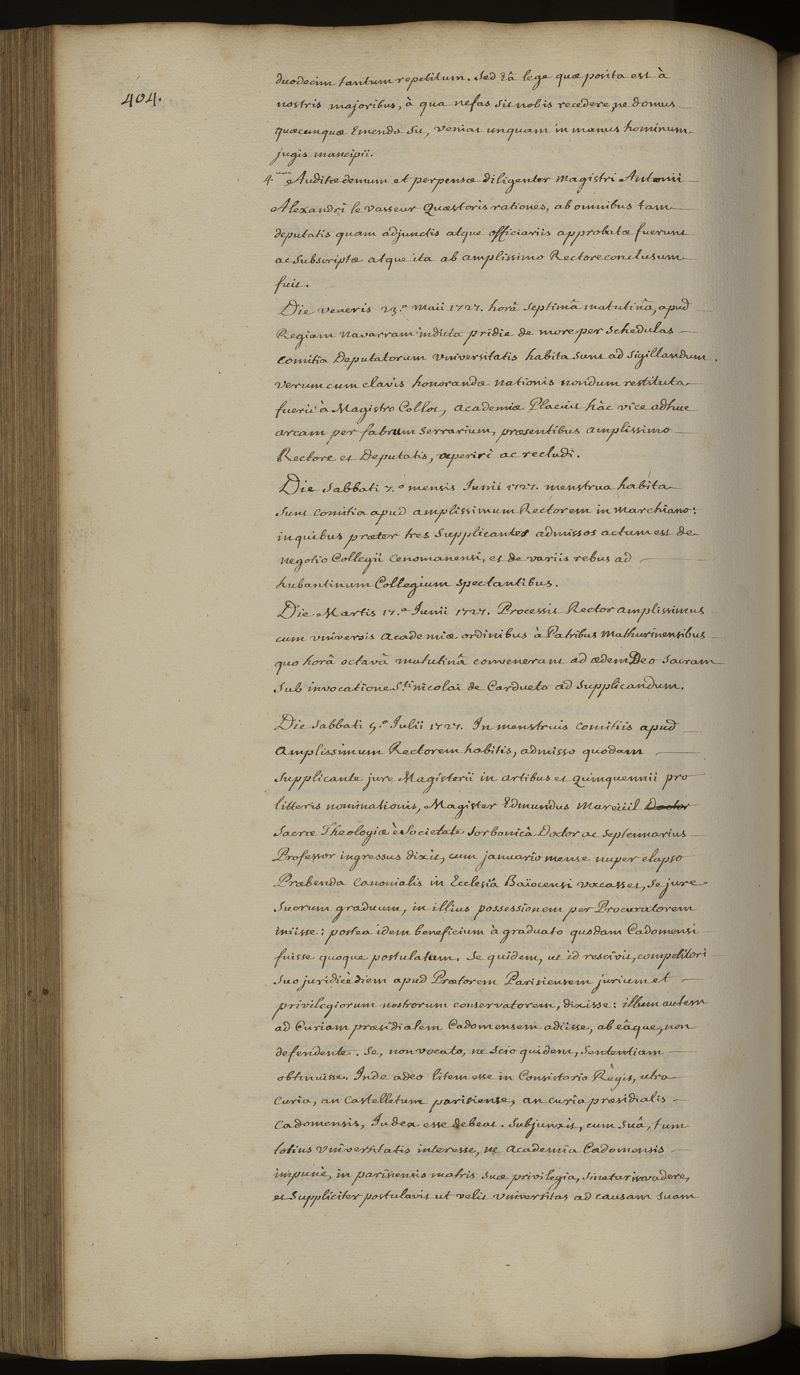 404.
duodecim tantum repetitum. Sed eâ lege quæ posita est à
nostris majoribus, à qua nefas sit nobis recedere, ne domus
quæcunquæ Emenda sit, veniat unquam in manus hominum
jugis mancipii.
4. Auditæ demum et perpensæ diligenter Magistri Antonii
Alexandri le vasseur Quæstoris rationes, ab omnibus tam
deputatis quam adjunctis atque officiariis approbatæ fuerunt
ac Subscriptæ atque ita ab amplissimo Rectore conclusum
fuit.
Die veneris 23.ª Maii 1727. horâ Septimâ matutinâ, apud
Regiam Navarram indicta pridie de more per Schedulas
Comitia Deputatorum Universitatis habita Sunt ad Sigillandum.
Verum cum clavis honorandæ nationis nondum restituta
fuerit à Magistro Collot, Academiæ Placuit hâc vice adhuc
arcam per fabrum Serrarium, præsentibus amplissimo
Rectore et Deputatis, aperiri ac recludi.
Die Sabbati 7.ª mensis Junii 1727. menstrua habita
Sunt Comitia apud amplissimum Rectorem in Marchiano:
in quibus præter tres Supplicantes admissos actum est de
negotio Collegii Cenomanensi, et de variis rebus ad
hubantinum Collegium Spectantibus.
Die Martis 17.ª Junii 1727. Processit Rector amplissimus
cum universis Academiæ ordinibus à Patribus Mathurinensibus
quo horâ octavâ matutinâ convenerant ad ædem Deo Sacram
Sub invocatione S.ti Nicolai de Cardueto ad Supplicandum.
Die Sabbati 5.ª Julii 1727. In menstruis Comitiis apud
Amplissimum Rectorem habitis, admisso quodam
Supplicante jure Magisterii in artibus et Quinquennii pro
litteris nominationis, Magister Edmundus Mareüil Doctor
Sacræ Theologiæ è Societate Sorbonicâ Doctor ac Septennarius
Professor ingressus dixit, cum januario mense nuper elapso
Præbenda Canonialis in Ecclesiâ Baiocensi vacasset, Se jure
Suorum graduum, in illius possessionem per Procuratorem
iniisse: postea idem beneficium à graduato quodam Cadomensi
fuisse quoque postulatum. Se quidem, ut id rescivit, competitori
Suo juridicè diem apud Prætorem Parisiensem jurium et
privilegiorum nostrorum conservatorem, dixisse: illum autem
ad Curiam præsidialem Cadomensem adiisse, ab eâque, non
defendente. Se, non vocato, ne Scio quidem, Sententiam
obtinuisse. Inde adeo litem esse in Consistorio Regis, utra
Curia, an Castelletum parisiense, an curia præsidialis
Cadomensis, Judex esse debeat. Subjunxit, cum Suâ, tum
totius Universitatis interesse, ne Academia Cadomensis
impunè, in parisiensis matris Suæ privilegia, Sinatur invadere,
et Suppliciter postulavit ut velit Universitas ad causam Suam